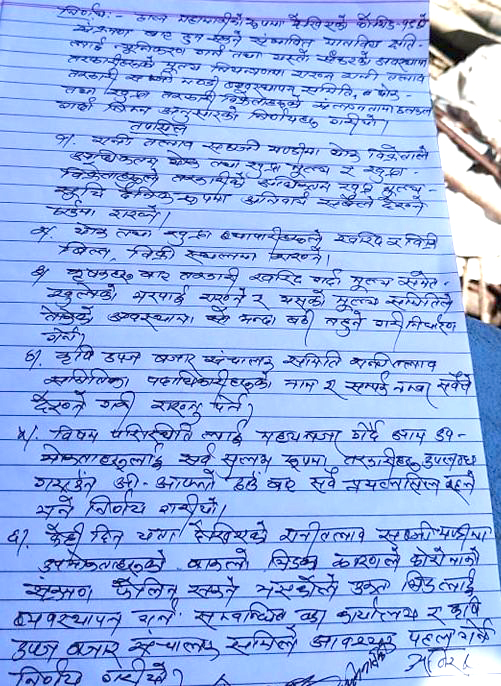 निर्णयः- हाल महामारीको रूपमा देखिएको कोभिड-१९को
संक्रमण बाट हुन सक्ने संभावित मानविय क्षति-
लाई न्यूनिकरण गर्न तथा यस्तो
तरकारीहरूको मूल्य नियन्त्रणमा राख्न रानी तलाव
तरकारी सब्जी मण्डी व्यवस्थापन समिति, थोक-
तथा खुद्रा तरकारी विक्रेताहरूको संलग्नतामा
गर्दा निम्न अनुसारको निर्णयहरू गरीयो।
तपसिल
१. रानी तलाव सब्जी मण्डीमा थोक विक्रेताले
अधिकतम थोक तथा खुद्रा मूल्य र खुद्रा-
विक्रेताहरूले तरकारीको अधिकतम खुद्रा मूल्य-
सूचि दैनिक रूपमा अनिवार्य सबैले देख्ने
ठाउँमा राख्ने।
२. थोक तथा खुद्रा व्यापारीहरूले खरिद र विक्री
बिल, विक्री स्थलमा राख्ने।
३. कृषकहरू बाट तरकारी खरिद गर्दा मूल्य समेत-
खुलेको भरपाई राख्ने र यसको मूल्य समितिले
तोकेको व्यवस्थामा भन्दा बढी नहुने गरी निर्धारण
गर्ने।
४. कृषि उपज बजार संचालक समिति रानी तलाव
समितिका पदाधिकारीहरूको नाम र सम्पर्क नम्बर सबैले
देख्ने गरी राख्नु पर्ने।
५. विषम परिस्थिति लाई मध्यनजर गर्दै आम उप-
भोक्ताहरूलाई सर्व सुलभ रूपमा तरकारीहरू उपलब्ध
गराउन आ-आफ्नो ठाउँ बाट सबै प्रयत्नसिल रहने
भन्ने निर्णय गरीयो।
६. केही दिन यता देखिएको रानीतलाव सब्जी मण्डीमा
उपभोक्ताहरूको बाक्लो भिडका कारणले कोरोनाको
संक्रमण फैलिन सक्ने भएकोले उक्त भिडलाई
व्यवस्थापन गर्न सम्बन्धित वडा कार्यालय र कृषि
उपज बजार संचालक समितिले आवश्यक पहल गर्ने
निर्णय गरीयो।